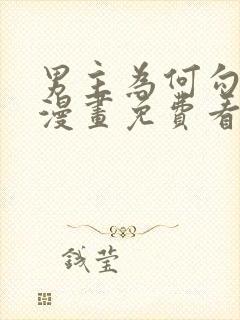 男主為何勾
漫畫免費看
錢瑩